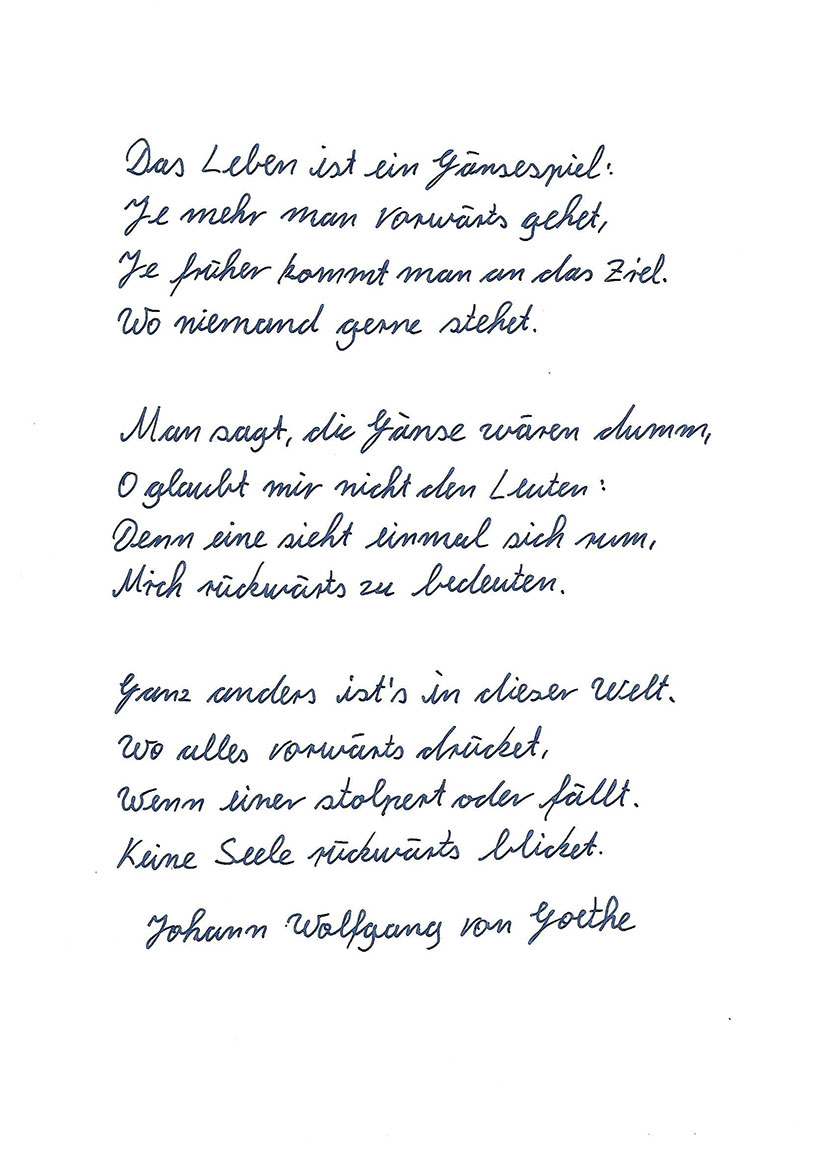 Das Leben ist ein Gänsespiel:
Je mehr man vorwärts gehet,
Je früher kommt man an das Ziel.
Wo niemand gerne stehet.
Man sagt, die Gänse wären dumm,
O glaubt mir nicht den Leuten:
Denn eine sieht einmal sich rum,
Mich rückwärts zu bedeuten.
Ganz anders ist's in dieser Welt.
Wo alles vorwärts drücket,
Wenn einer stolpert oder fällt.
Keine Seele rückwärts blicket.
Johann Wolfgang von Goethe